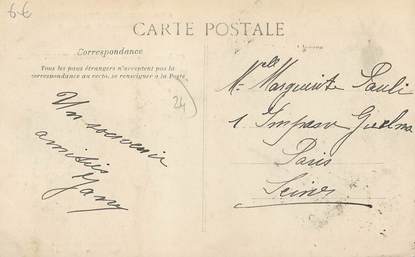 6€
CARTE POSTALE
Correspondance
Tous les pays étrangers n'acceptent pas la
correspondance au recto, se renseigner à la Poste
24
Un souvenir
amitiés
Mlle Marguerite Pauli
1 Impasse Guelma
Paris
Seine